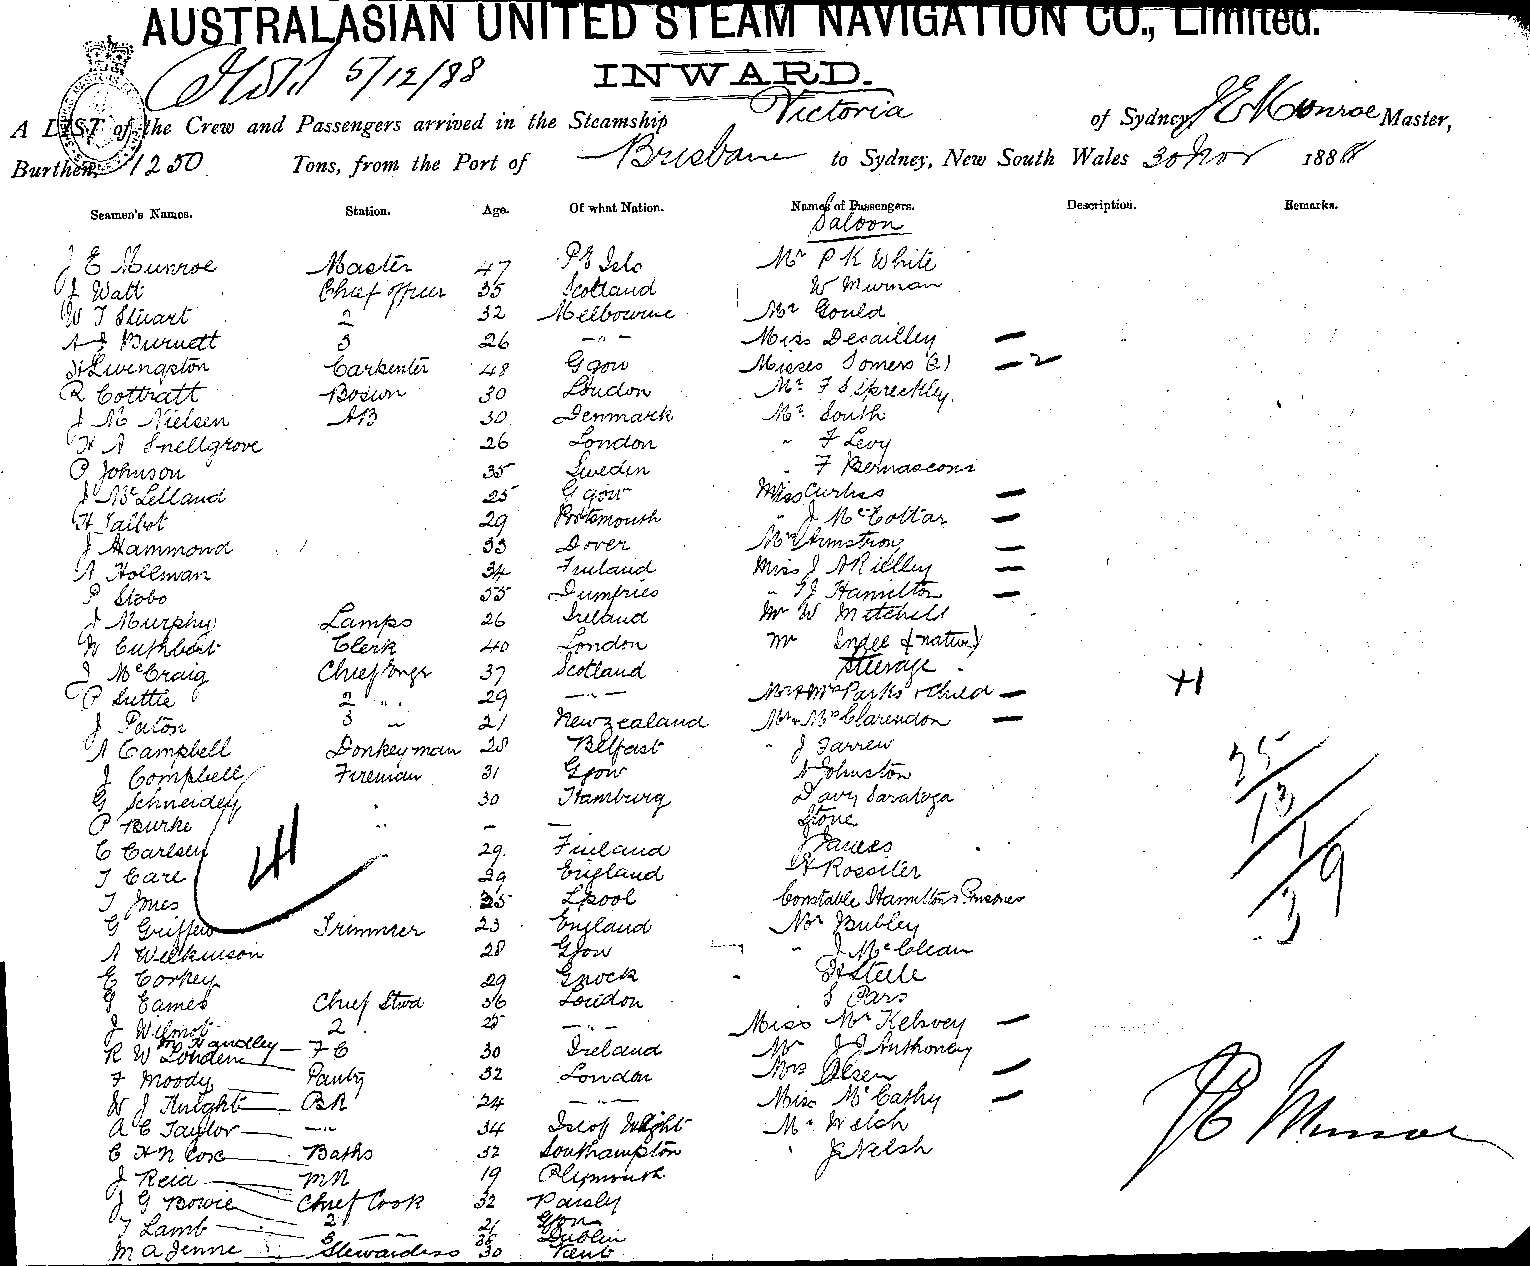 AUSTRALASIAN UNITED STEAM NAVIGATION CO., Limited.
5/12/88
INWARD.
A LIST of the Crew and Passengers arrived in the Steamship Victoria of Sydney J E Munroe Master,
Burthen, 1250 Tons, from the Port of Brisbane to Sydney, New South Wales 30 Nov 1888
Seamen's Names. Station. Age. Of what Nation. Names of Passengers. Description. Remarks.
Saloon
J E Munroe Master 47 P E Isld Mr P K White
J Watt Chief officer 35 Scotland W Murnan
W T Stuart 2 32 Melbourne Mr Gould
A J Burnett 3 26 - " - Miss Desailley —
H Livingston Carpenter 48 Ggow Misses Somers (2) — 2
R Cottratt Bosun 30 London Mr F S Spreckley
J M Nielsen AB 30 Denmark Mr South
H A Snellgrove 26 London " F Levy
P Johnson 35 Sweden " F Bernasconi
J McLelland 25 Ggow Miss Curtiss —
H Talbot 29 Portsmouth " J McCottar —
J Hammond 33 Dover Mrs Armstrong —
A Hollman 34 Finland Miss J A Rielley —
P Stobo 55 Dumfries " Hamilton —
J Murphy Lamps 26 Ireland Mr W Mitchell
W Cuthbert Clerk 40 London Mr (native)
J McCraig Chief Engr 37 Scotland Steerage
P Suttle 2 " 29 - " - Mr & Mrs Parks & Child —
J Paton 3 " 21 New Zealand Mr & Mrs Clarendon —
A Campbell Donkeyman 28 Belfast " J Farrew
J Campbell Fireman 31 Ggow A Johnston
G Schneidey 30 Hamburg Davy Saratoga
P Burke " - - Stone
C Carlsen 29 Finland J James
T Care 29 England H Rossiter
T Jones 35 Lpool Constable Hamilton & Prisoner
G Griffen Trimmer 23 England Mr Bubley
A Wilkinson 28 Ggow " J McClean
E Corkey 29 Gnock H Steele
G Eames Chief Stwd 36 London S Pars
J Wilmot 2 25 - " - Miss McKelvey —
Wm Handley
R W Londene F C 30 Ireland Mr J J Anthoney
F Moody Pantry 32 London Mrs Olsen —
W J Knight BR 24 - " - Miss McCathy —
A C Taylor - " - 34 Isle of Wight Mr Welch
C H N Cox Baths 32 Southampton " J Welsh
J Reid MR 19 Plymouth
J G Bowie Chief Cook 32 Paisly
T Lamb 2 21 Ggow
3 Dublin
M A Jenne Stewardess 30 Kent
25
13
1
39
J E Munroe